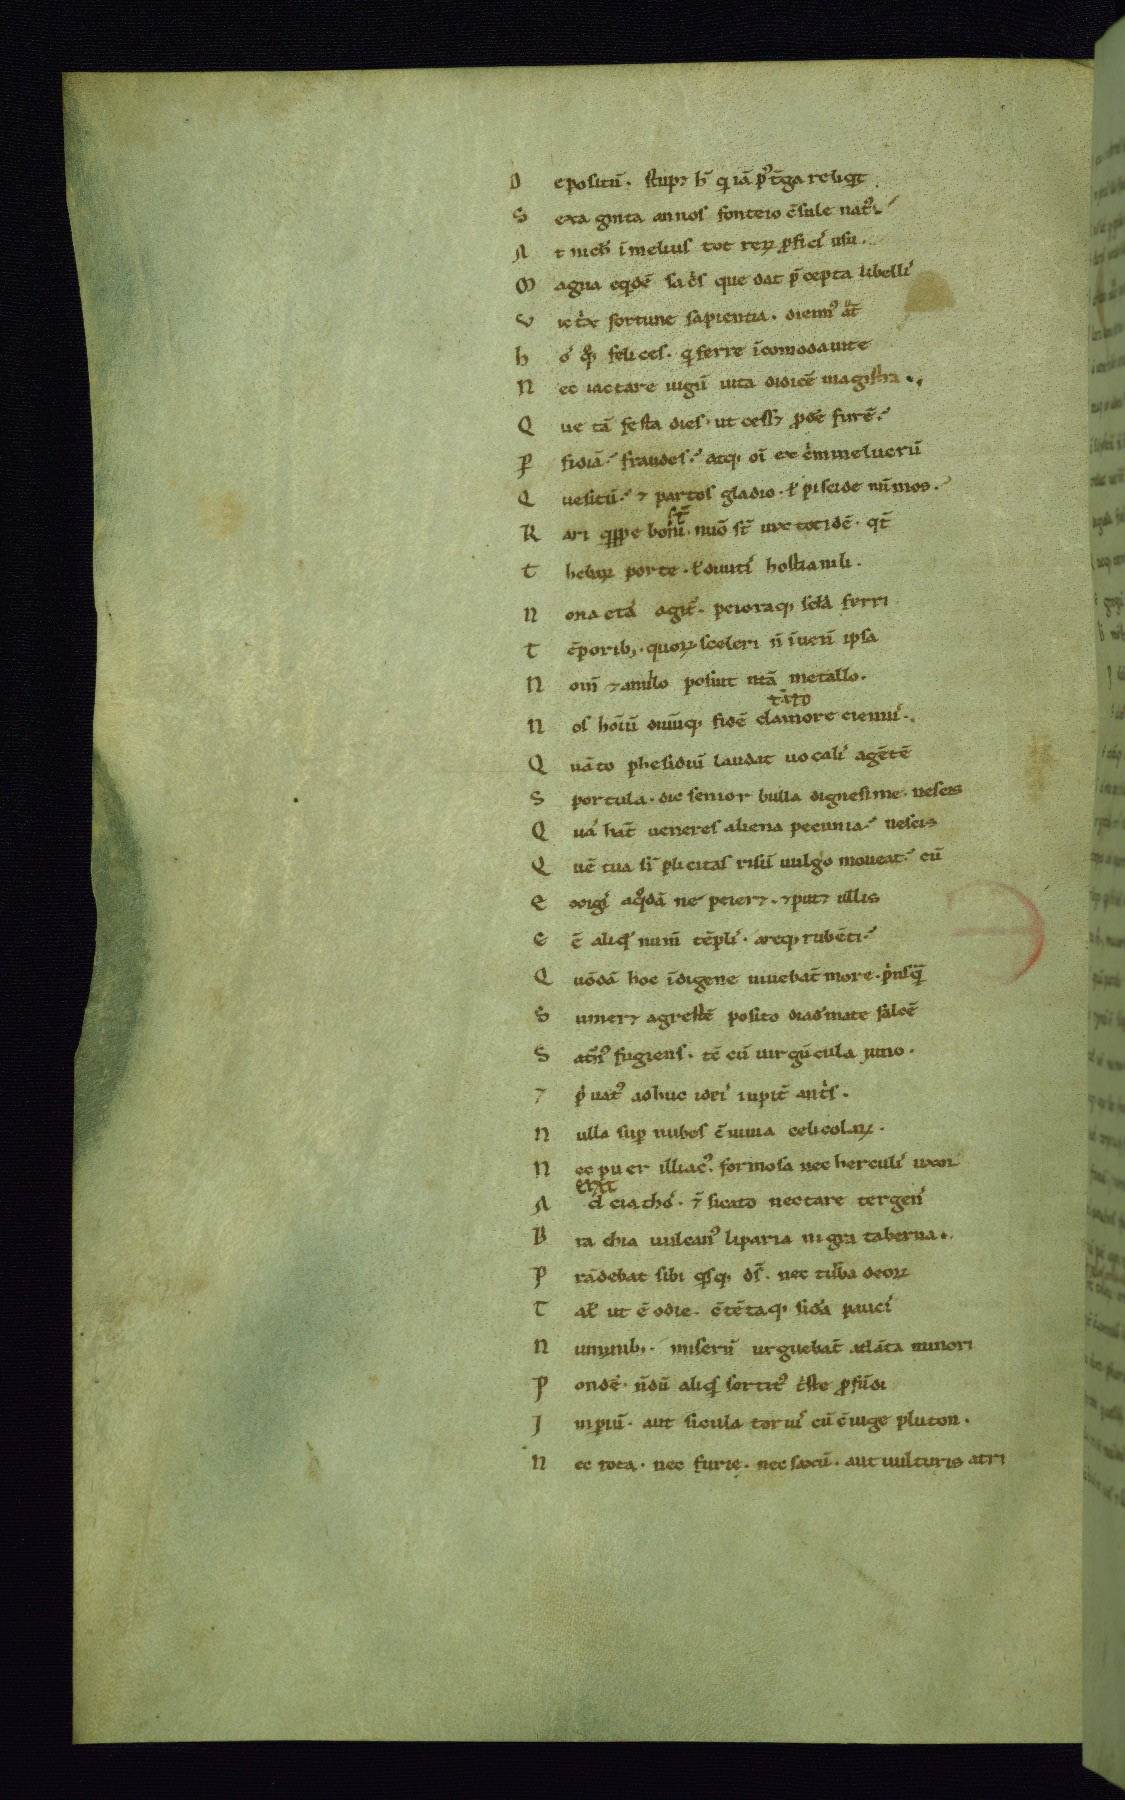 D epositū. stup& h̄ q iā pꝰ t̄ga reliq̇t
S exa ginta annos fonteio c̄sule natꝰ.
A t nich̓ ī melius tot reꝝ ꝓfici᷒ usu.
M agna eqͥdē sac̓s que dat p̄cepta libelli᷒
V ictͥx fortune sapientia. dicimꝰ aūt̄
h o᷒ qͦꝙ felices. qͥ ferre īcomoda uite
N ec iactare iugū uita didicē magistra.
Q ue tā festa dies. ut cess& ꝓdē furē.
ꝑ fidiā. fraudes. atqꝫ oī ex cͥmine lucrū
Q uesitū. & partos gladio. ł piscide nūmos.
R ari qͥppe boni. nūō st̄ uix totidē. qt̄
st̄
T hebaꝝ porte. ł diuiti᷒ hostia nili.
N ona eta᷒ agit̄. peioraqꝫ sc̄la ferri
T ēporibꝫ. quoꝝ sceleri n̄ īuen̄ ipsa
N om̄ & anułlo posuit nr̄ā metallo.
tāto
N os hoīū diuūqꝫ fidē clamore ciemu᷒.
Q uāto phesidiū laudat uocali᷒ agētē
S portula. dic senior bulla dignesime. nescis
Q ua᷒ hāt ueneres aliena pecunia. nescis
Q uē tua sīplicitas risū uulgo moueat. cū
E xigi᷒ aqͦdā ne peier&. & put& ullis
E ē̄ aliqͦd num̄ tēpli᷒. areqꝫ rubēti.
Q uōdā hoc īdigene uiuebāt more. pͥusq̄
S umer& agrestē posito diademate falcē
S at̄nꝰ fugiens. tc̄ cū uirgūcula juno.
7 pͥuatꝰ adhuc idei᷒ iupit̄ ant͛s.
N ulla suꝑ nubes c̄uiuia celicolaꝝ.
N ec puer illiacꝰ. formosa nec herculi᷒ uxor
erat
A d ciatho᷒. & siccato nectare tergen᷒
B rachia uulcanꝰ liparia nigra taberna.
P rādebat sibi qͥsqꝫ d᷒s. nec turba deoꝝ
T al̓ ut ē̄ odie. c̄tētaqꝫ sid̓a pauci᷒
N uminibꝫ. miserū urguebāt atlāta minori
P ondē. n̄dū aliqͥs sortitꝰ tͥste ꝓfūdi
J mpiū. aut sicula toruu᷒ cū c̄iuge pluton.
N ec rota. nec furię. nec saxū. aut uulturis atri